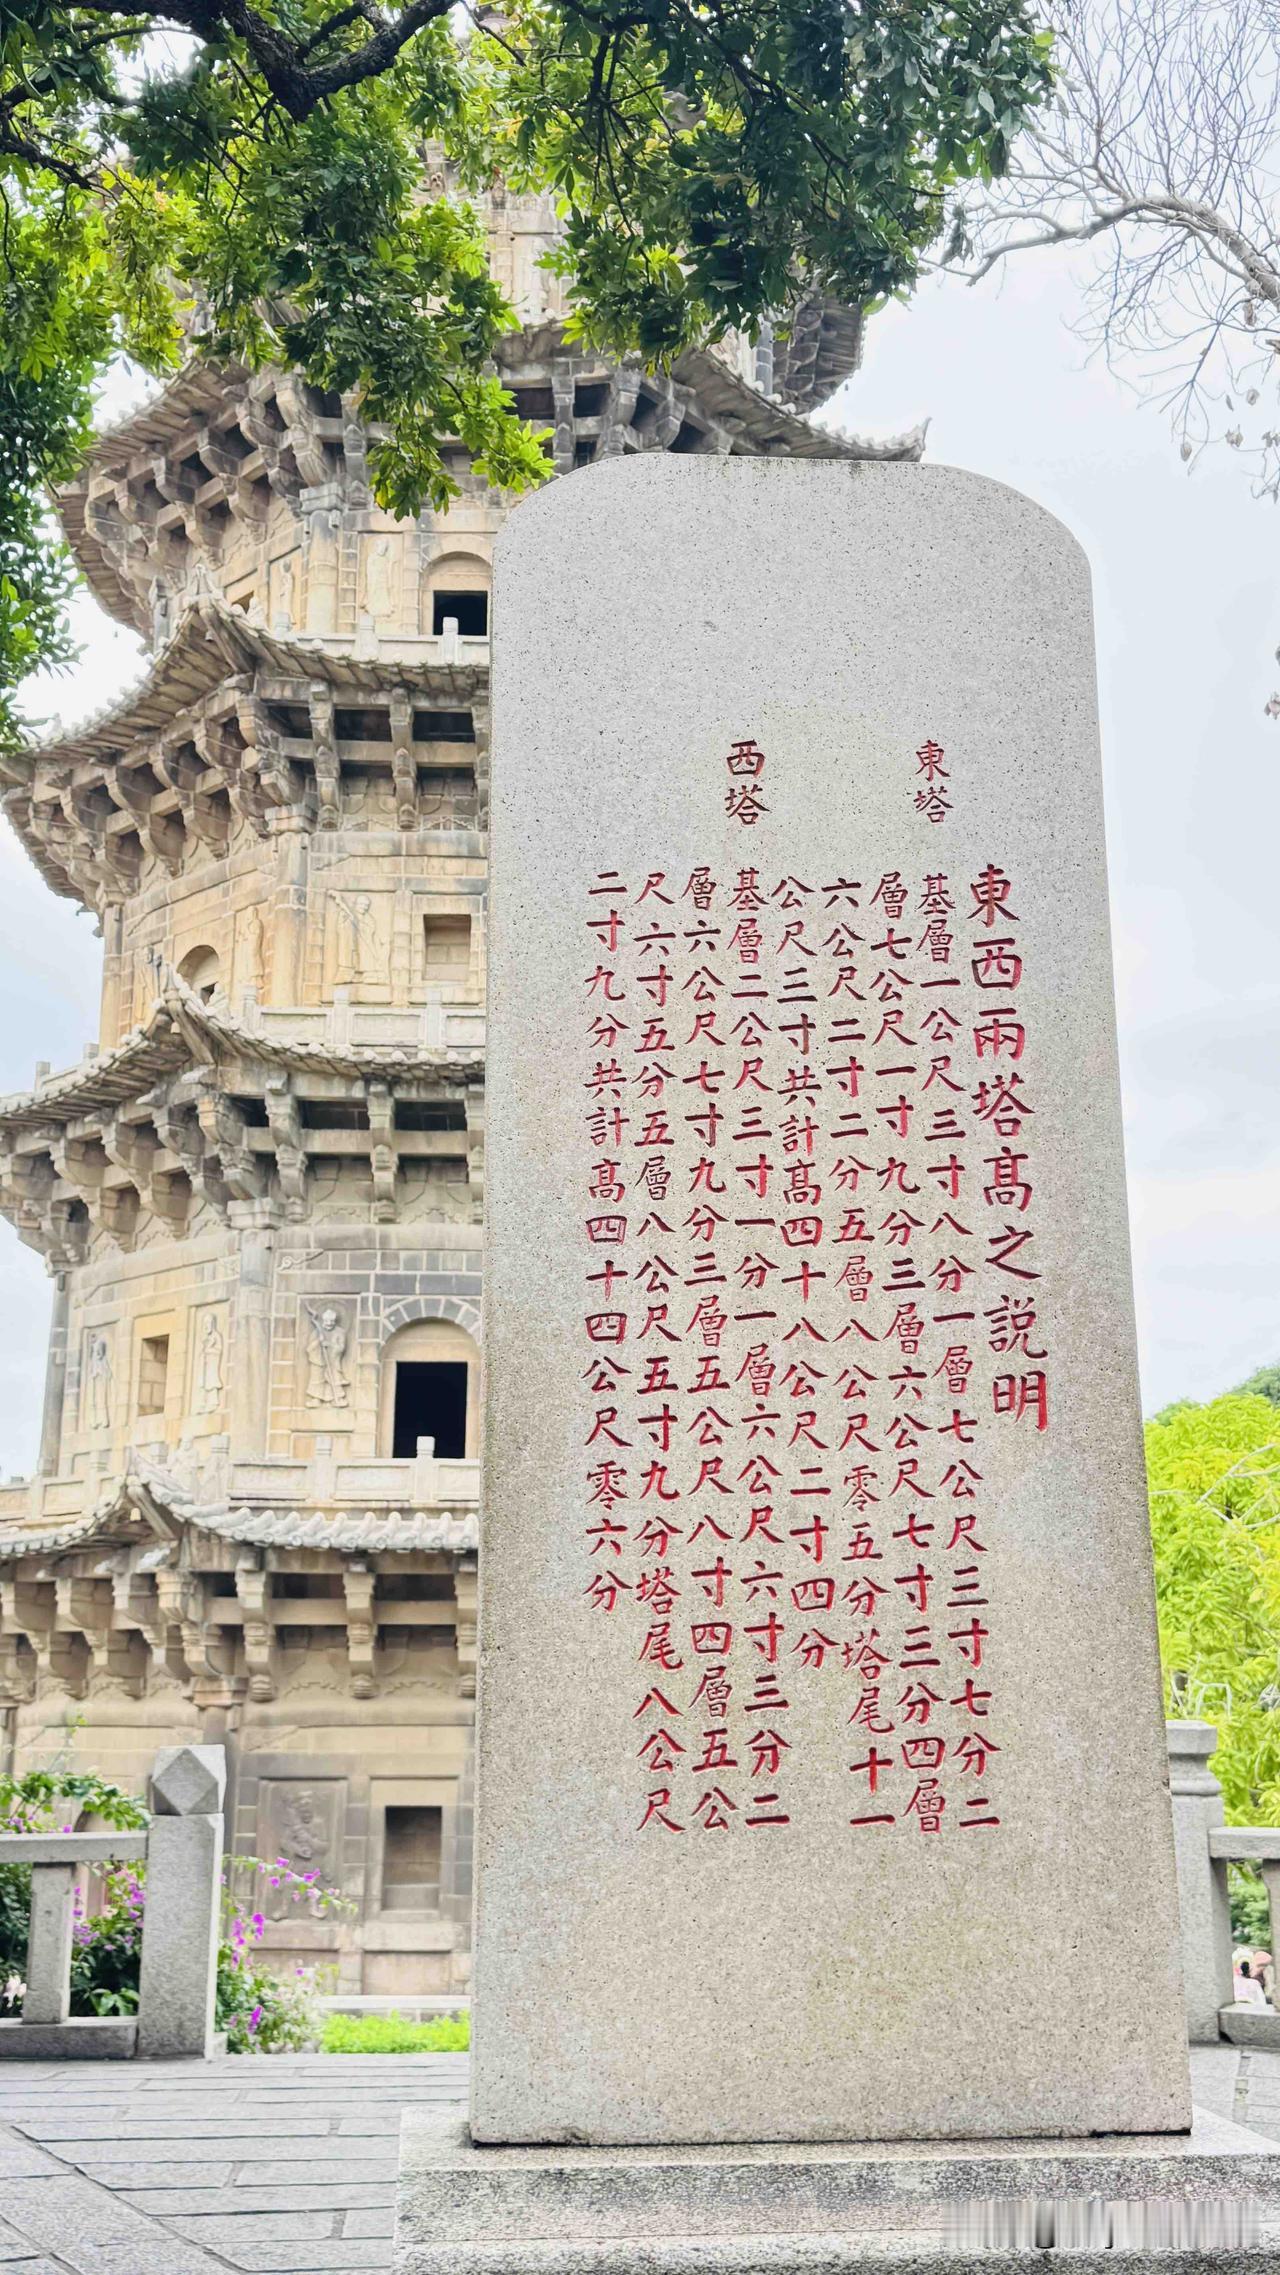 東西兩塔高之説明
東塔
基層一公尺三寸八分一層七公尺三寸七分二
層七公尺一寸九分三層六公尺七寸三分四層
六公尺二寸二分五層八公尺零五分塔尾十一
公尺三寸共計高四十八公尺二寸四分
西塔
基層二公尺三寸一分一層六公尺六寸三分二
層六公尺七寸九分三層五公尺八寸四層五公
尺六寸五分五層八公尺五寸九分塔尾八公尺
二寸九分共計高四十四公尺零六分